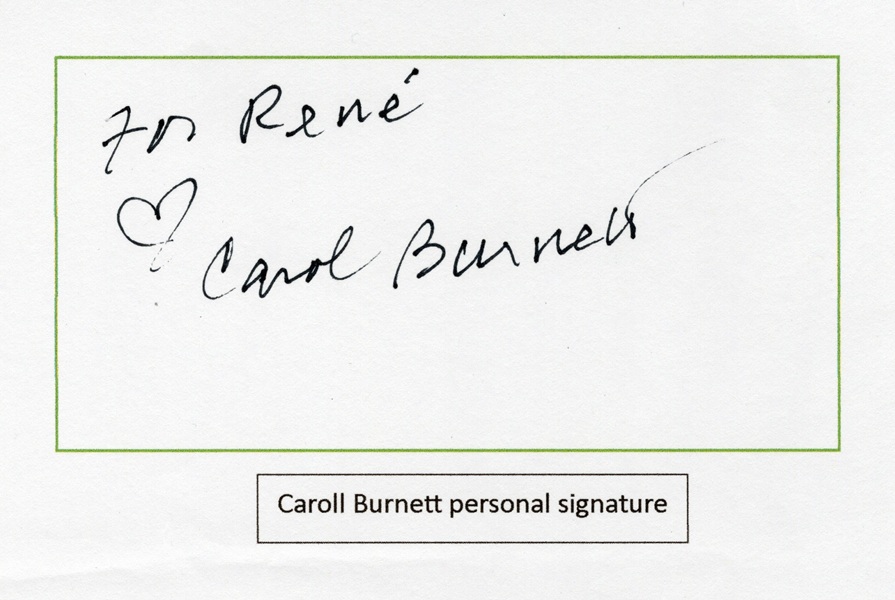 For René
Carol Burnett
Caroll Burnett personal signature